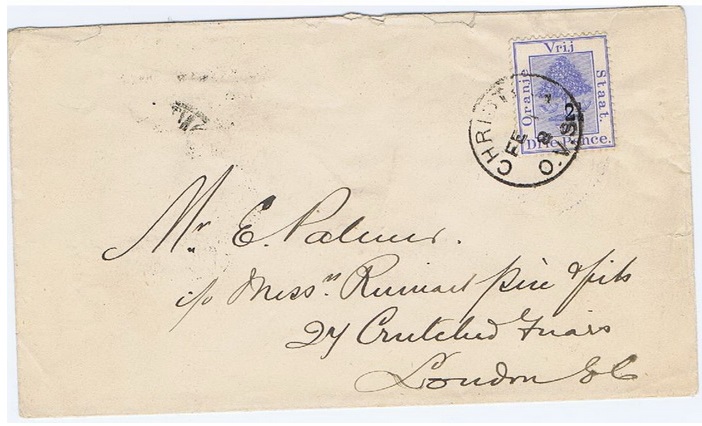 Vrij
Oranje
Staat.
Drie Pence.
2
CHRIST
FE
8
O.V.S.
Mr E. Palmer.
c/o Messrs Ruinart père & fils
27 Crutched Friars
London E C